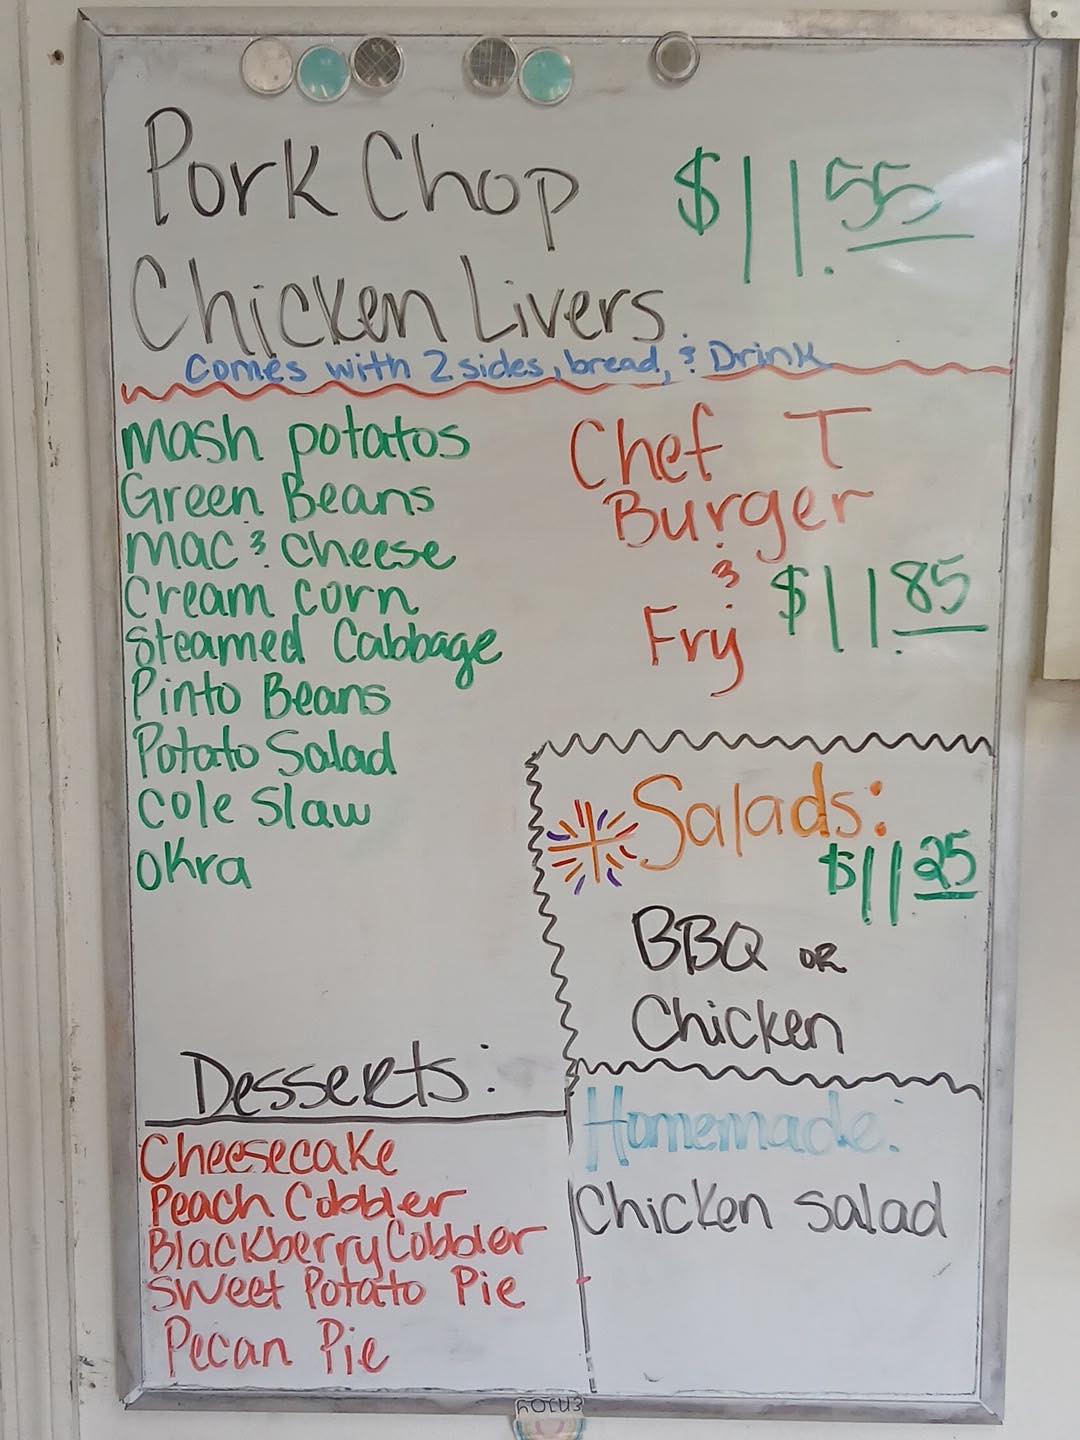 Pork Chop $11.55
Chicken Livers
Comes with 2 sides, bread, & Drink
Mash potatos
Green Beans
Mac & Cheese
Cream corn
Steamed Cabbage
Pinto Beans
Potato Salad
Cole Slaw
Okra
Chef T
Burger
&
Fry $11.85
Salads:
$11.25
BBQ OR
Chicken
Desserts:
Cheesecake
Peach Cobbler
Blackberry Cobbler
Sweet Potato Pie
Pecan Pie
Homemade:
Chicken Salad